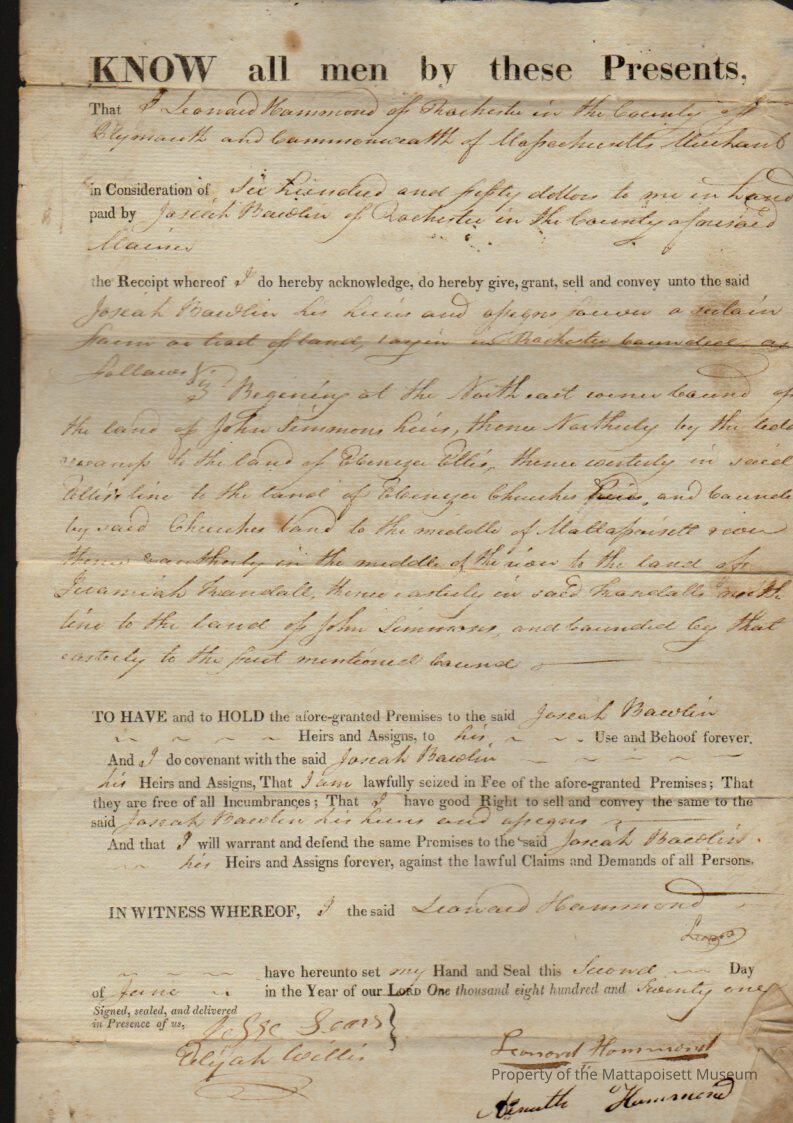 KNOW all men by these Presents,
That I Leonard Hammond of Rochester in the County of
Plymouth and Commonwealth of Massachusetts Merchant
in Consideration of Six Hundred and fifty dollors to me in hand
paid by Joseah Bawlin of Rochester in the County aforesaid
Marinor
the Receipt whereof I do hereby acknowledge, do hereby give, grant, sell and convey unto the said
Joseah Bawlin his heirs and assigns a certain
farm or tract of land, in Rochester bounded as
follows Viz
Begining at the North east corner bound of
the land of John Simmons heirs, thence Northerly by the
swamp to the land of Ebenezer Ellis, thence westerly in said
Ellis line to the land of Ebenezer Churches heirs, and bounded
by said Churches land to the middle of Mattapoisett river
thence southerly in the middle of the river to the land of
Jeremiah Randall, thence easterly in said Randalls north
line to the land of John Simmons, and bounded by that
easterly to the first mentioned bound
TO HAVE and to HOLD the afore-granted Premises to the said Joseah Bawlin
Heirs and Assigns, to his Use and Behoof forever.
And I do covenant with the said Joseah Bawlin
his Heirs and Assigns, That I am lawfully seized in Fee of the afore-granted Premises; That
they are free of all Incumbrances; That I have good Right to sell and convey the same to the
said Joseah Bawlin his heirs and assigns
And that I will warrant and defend the same Premises to the said Joseah Bawlin
his Heirs and Assigns forever, against the lawful Claims and Demands of all Persons.
IN WITNESS WHEREOF, I the said Leonard Hammond
have hereunto set my Hand and Seal this Second Day
of June in the Year of our LORD One thousand eight hundred and twenty one
Signed, sealed, and delivered
in Presence of us,
Jesse Sears
Elijah Willis
Leonard Hammond
Property of the Mattapoisett Museum
Hammond